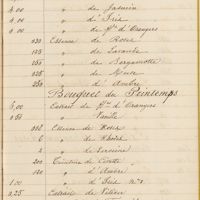 4.00 " de Jasmin
4.00 " d'Iris
4.00 " de fl. d'Oranger
.030 Essence de Rose
.125 " de Lavande
.250 " de Bergamotte
.125 " de
.250 " d'Ambre
Bouquet du Printemps
6.00 Extrait de fl. d'Oranger
" Vanille
Essence de Rose
" de
" de Verveine
200 Teinture de Civette
" d'Ambre
1.00 " d'Iris No 1
0.25 Extrait de